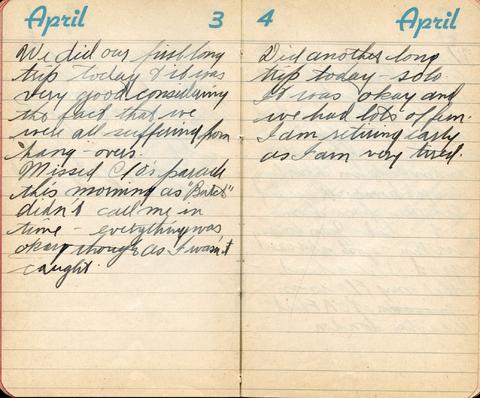 April 3
We did our first long
trip today & it was
very good considering
the fact that we
were all suffering from
"hang-overs.
Missed C/O's parade
this morning as "Butch"
didn't call me in
time - everything was
okay though as I wasn't
caught.
4 April
Did another long
trip today - solo.
It was okay and
we had lots of fun.
I am retiring early
as I am very tired.